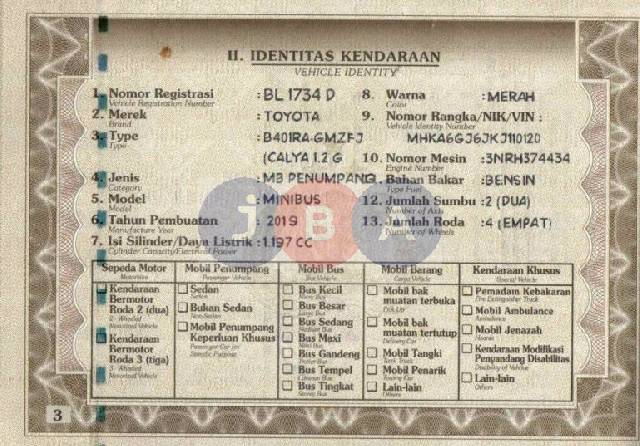 II. IDENTITAS KENDARAAN
VEHICLE IDENTITY
1. Nomor Registrasi : BL 1734 D
Vehicle Registration Number
2. Merek : TOYOTA
Brand
3. Type : B401RA-GMZFJ
Type
(CALYA 1.2 G
4. Jenis : MB PENUMPANG
Category
5. Model : MINIBUS
Model
6. Tahun Pembuatan : 2019
Manufacture Year
7. Isi Silinder/Daya Listrik : 1.197 CC
Cylinder Capacity/Electrical Power
8. Warna : MERAH
Color
9. Nomor Rangka/NIK/VIN :
Vehicle Identity Number
MHKA6GJ6JKJ110120
10. Nomor Mesin : 3NRH374434
Engine Number
Bahan Bakar : BENSIN
Type Fuel
12. Jumlah Sumbu : 2 (DUA)
Number of Axis
13. Jumlah Roda : 4 (EMPAT)
Number of Wheels
JBA
Sepeda Motor
Motorbike
Kendaraan
Bermotor
Roda 2 (dua)
2- Wheeled
Motorized Vehicle
Kendaraan
Bermotor
Roda 3 (tiga)
3- Wheeled
Motorized Vehicle
Mobil Penumpang
Passenger Vehicle
Sedan
Sedan
Bukan Sedan
Non-Sedan
Mobil Penumpang
Keperluan Khusus
Passenger Car for
Specific Purpose
Mobil Bus
Bus Vehicle
Bus Kecil
Bus Besar
Bus Sedang
Bus Maxi
Bus Gandeng
Bus Tempel
Bus Tingkat
Mobil Barang
Cargo Vehicle
Mobil bak
muatan terbuka
Pick Up
Mobil bak
muatan tertutup
Delivery Car
Mobil Tangki
Tank Truck
Mobil Penarik
Towing Car
Lain-lain
Others
Kendaraan Khusus
Special Vehicle
Pemadam Kebakaran
Fire Extinguisher Truck
Mobil Ambulance
Ambulance
Mobil Jenazah
Hearse
Kendaraan Modifikasi
Penyandang Disabilitas
Disability of Vehicle
Lain-lain
Others
3